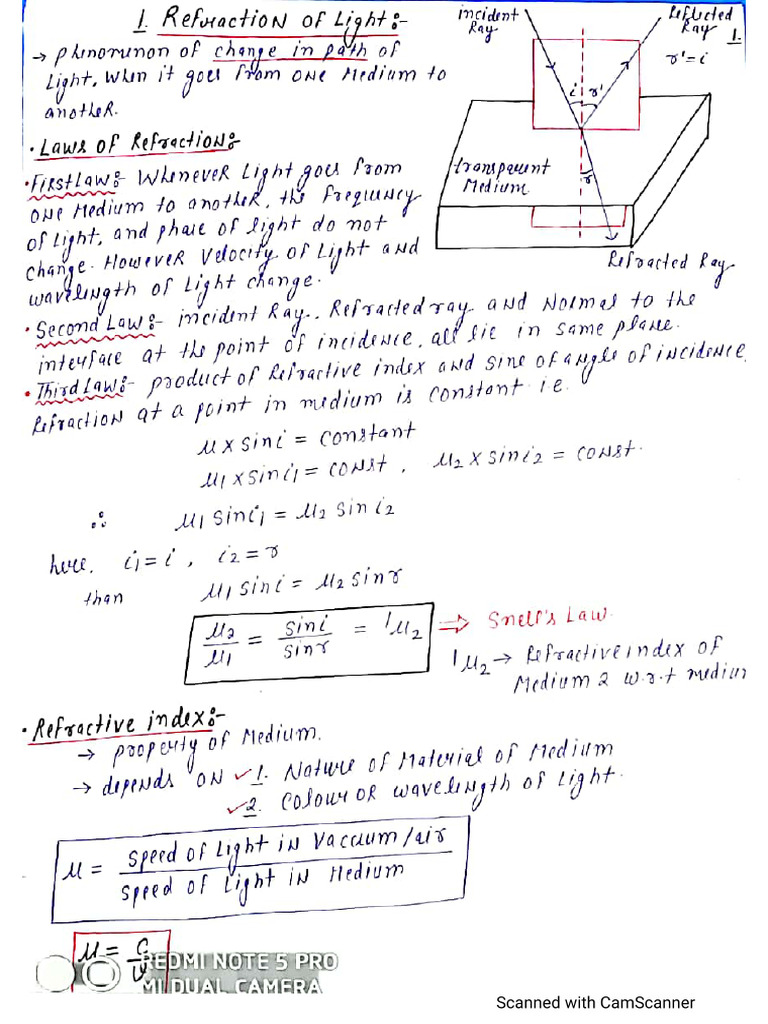 1. Refraction of Light:-
→ phenomenon of change in path of
Light, when it goes from one Medium to
another.
incident
Ray
Reflected
Ray
1.
r'=i
i
r'
transparent
Medium
r
Refracted Ray
• Laws of Refraction:-
• First Law:- Whenever Light goes from
one Medium to another, the frequency
of Light, and phase of light do not
change. However Velocity of Light and
wavelength of Light change.
• Second Law:- incident Ray, Refracted ray and Normal to the
interface at the point of incidence, all lie in same plane.
• Third Law:- product of Refractive index and sine of angle of incidence
Refraction at a point in medium is constant i.e.
μ x sini = constant
μ1 x sini1 = const, μ2 x sini2 = const.
∴ μ1 sini1 = μ2 sini2
here, i1 = i, i2 = r
than μ1 sini = μ2 sinr
μ2/μ1 = sini/sinr = ¹μ2 ⇒ Snell's Law.
¹μ2 → Refractive index of
Medium 2 w.r.t medium
• Refractive index:-
→ property of Medium.
→ depends on ✓ 1. Nature of Material of Medium
✓ 2. Colour or wavelength of Light.
μ = speed of Light in Vaccuum/air
speed of Light in Medium
μ = c/v
REDMI NOTE 5 PRO
MI DUAL CAMERA
Scanned with CamScanner